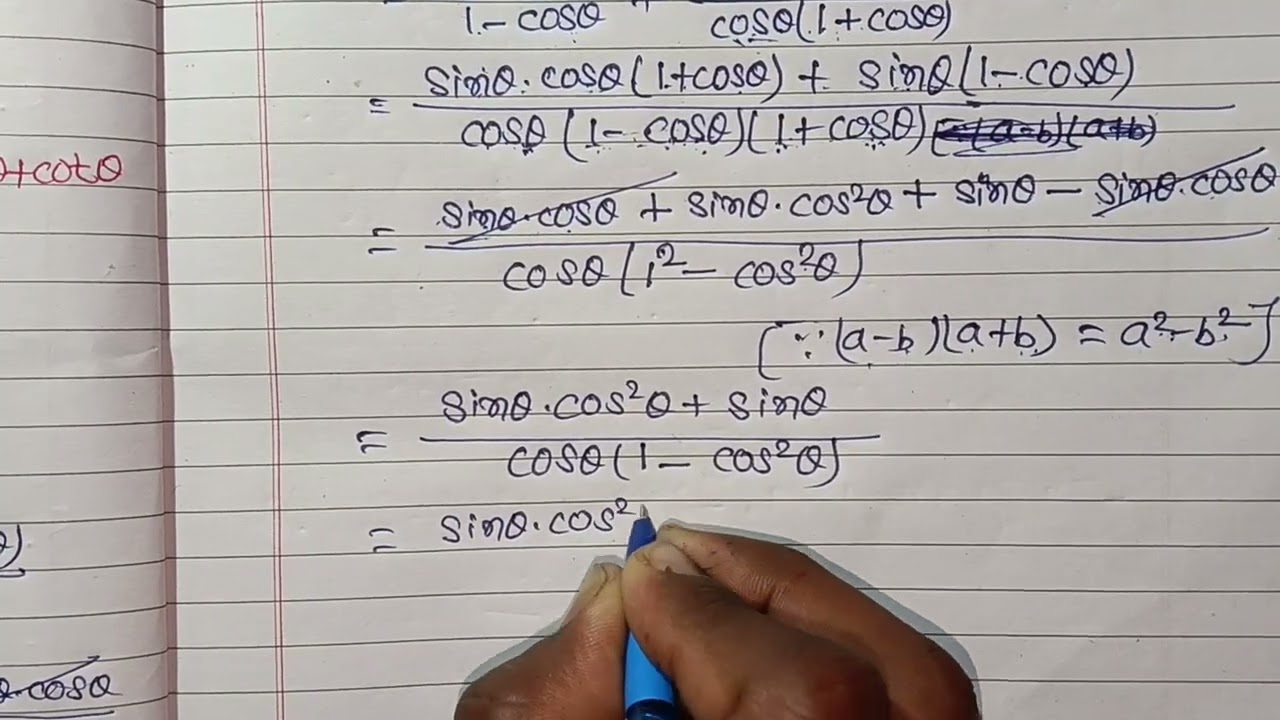 1 - cosθ + cosθ(1 + cosθ)
= sinθ · cosθ (1+cosθ) + sinθ (1 - cosθ)
cosθ (1 - cosθ)(1 + cosθ) (a-b)(a+b)
= sinθ·cosθ + sinθ·cos²θ + sinθ - sinθ·cosθ
cosθ (1² - cos²θ)
[∵ (a-b)(a+b) = a²-b²]
= sinθ·cos²θ + sinθ
cosθ (1 - cos²θ)
= sinθ·cos²
+cotθ
θ)
·cosθ